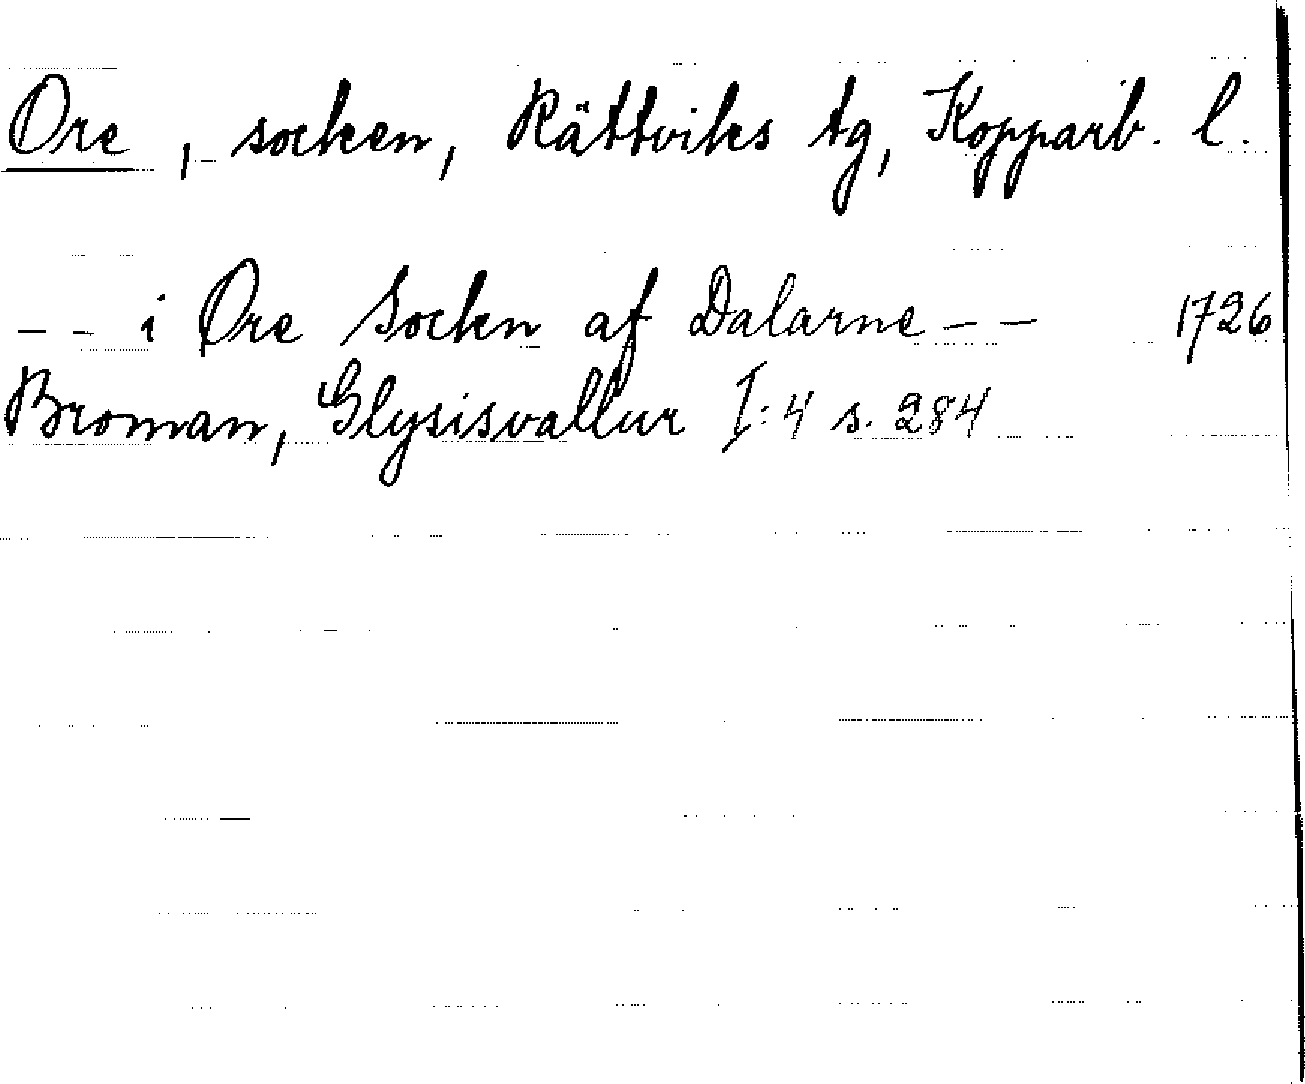 Ore, socken, Rättviks tg, Kopparb. l.
-- i Ore Socken af Dalarne -- 1726
Broman, Glysisvallur I:4 s. 284